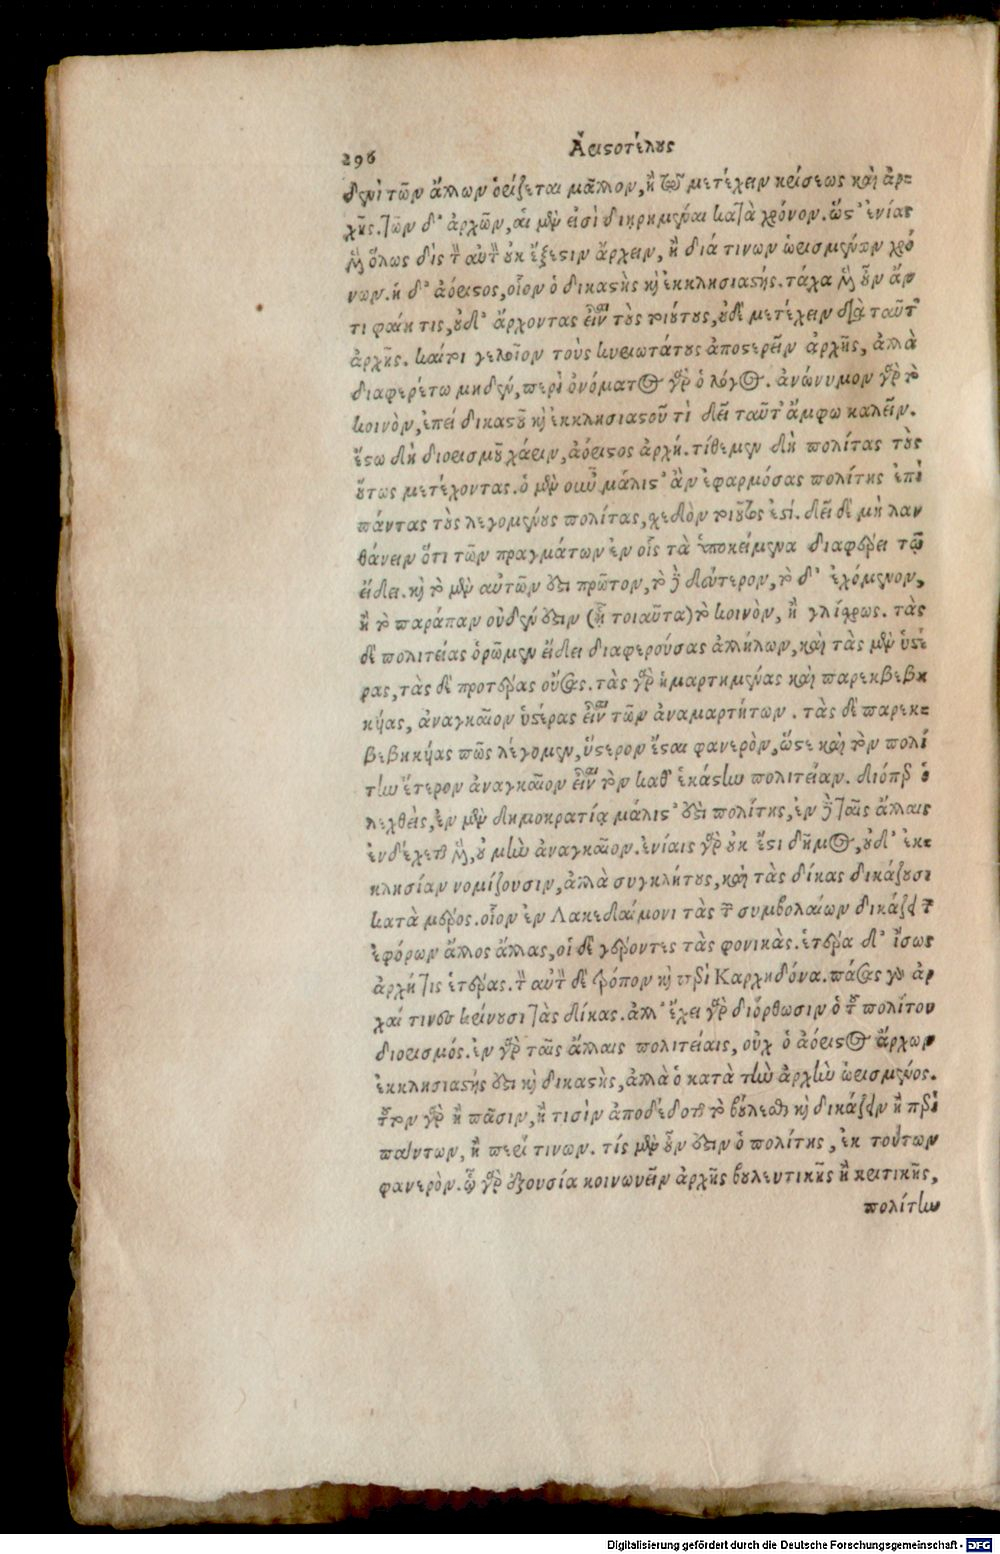 296 Ἀριστοτέλους
δενὶ τῶν ἄλλων ὁρίζεται μᾶλλον, ἢ τῷ μετέχειν κρίσεως καὶ ἀρ-
χῆς. τῶν δ' ἀρχῶν, αἱ μὲν εἰσὶ διῃρημέναι κατὰ χρόνον. ὥστ' ἐνίας
μὲν ὅλως δὶς τὸν αὐτὸν οὐκ ἔξεστιν ἄρχειν, ἢ διά τινων ὡρισμένων χρό
νων. ὁ δ' ἀόριστος, οἷον ὁ δικαστὴς καὶ ἐκκλησιαστής. τάχα μὲν οὖν ἄν
τι φαίη τις, οὐδ' ἄρχοντας εἶναι τοὺς τοιούτους, οὐδὲ μετέχειν διὰ ταῦτ'
ἀρχῆς. καίτοι γελοῖον τοὺς κυριωτάτους ἀποστερεῖν ἀρχῆς, ἀλλὰ
διαφερέτω μηδέν, περὶ ὀνόματος γὰρ ὁ λόγος. ἀνώνυμον γὰρ τὸ
κοινὸν, ἐπεί δικαστοῦ καὶ ἐκκλησιαστοῦ τὶ δεῖ ταῦτ' ἄμφω καλεῖν.
ἔστω δὴ διορισμοῦ χάριν, ἀόριστος ἀρχή. τίθεμεν δὴ πολίτας τοὺς
οὕτως μετέχοντας. ὁ μὲν οὖν μάλιστ' ἂν ἐφαρμόσας πολίτης ἐπὶ
πάντας τοὺς λεγομένους πολίτας, σχεδὸν τοιοῦτος ἐστί. δεῖ δὲ μὴ λαν
θάνειν ὅτι τῶν πραγμάτων ἐν οἷς τὰ ὑποκείμενα διαφέρει τῷ
εἴδει. καὶ τὸ μὲν αὐτῶν ἐστι πρῶτον, τὸ δὲ δεύτερον, τὸ δ' ἐχόμενον,
ἢ τὸ παράπαν οὐδέν ἐστιν (ᾗ τοιαῦτα) τὸ κοινὸν, ἢ γλίσχρως. τὰς
δὲ πολιτείας ὁρῶμεν εἴδει διαφερούσας ἀλλήλων, καὶ τὰς μὲν ὑστέ
ρας, τὰς δὲ προτέρας οὔσας. τὰς γὰρ ἡμαρτημένας καὶ παρεκβεβη
κυίας, ἀναγκαῖον ὑστέρας εἶναι τῶν ἀναμαρτήτων. τὰς δὲ παρεκ-
βεβηκυίας πῶς λέγομεν, ὕστερον ἔσται φανερὸν, ὥστε καὶ τὸν πολί
την ἕτερον ἀναγκαῖον εἶναι τὸν καθ' ἑκάστην πολιτείαν. διόπερ ὁ
λεχθεὶς, ἐν μὲν δημοκρατίᾳ μάλιστ' ἐστὶ πολίτης, ἐν δὲ ταῖς ἄλλαις
ἐνδέχεται μὲν, οὐ μὴν ἀναγκαῖον. ἐνίαις γὰρ οὐκ ἔστι δῆμος, οὐδ' ἐκ-
κλησίαν νομίζουσιν, ἀλλὰ συγκλήτους, καὶ τὰς δίκας δικάζουσι
κατὰ μέρος. οἷον ἐν Λακεδαίμονι τὰς τῶν συμβολαίων δικάζει τῶν
ἐφόρων ἄλλος ἄλλας, οἱ δὲ γέροντες τὰς φονικὰς. ἑτέρα δ' ἴσως
ἀρχή τις ἑτέρας. τὸν αὐτὸν δὲ τρόπον καὶ περὶ Καρχηδόνα. πάσας γὰρ ἀρ
χαί τινες κρίνουσι τὰς δίκας. ἀλλ' ἔχει γὰρ διόρθωσιν ὁ τοῦ πολίτου
διορισμός. ἐν γὰρ ταῖς ἄλλαις πολιτείαις, οὐχ ὁ ἀόριστος ἄρχων
ἐκκλησιαστής ἐστι καὶ δικαστὴς, ἀλλὰ ὁ κατὰ τὴν ἀρχὴν ὡρισμένος.
τούτων γὰρ ἢ πᾶσιν, ἢ τισὶν ἀποδέδοται τὸ βουλεύεσθαι καὶ δικάζειν ἢ περὶ
πάντων, ἢ περί τινων. τίς μὲν οὖν ἐστιν ὁ πολίτης, ἐκ τούτων
φανερὸν. ᾧ γὰρ ἐξουσία κοινωνεῖν ἀρχῆς βουλευτικῆς ἢ κριτικῆς,
πολίτην
Digitalisierung gefördert durch die Deutsche Forschungsgemeinschaft - DFG